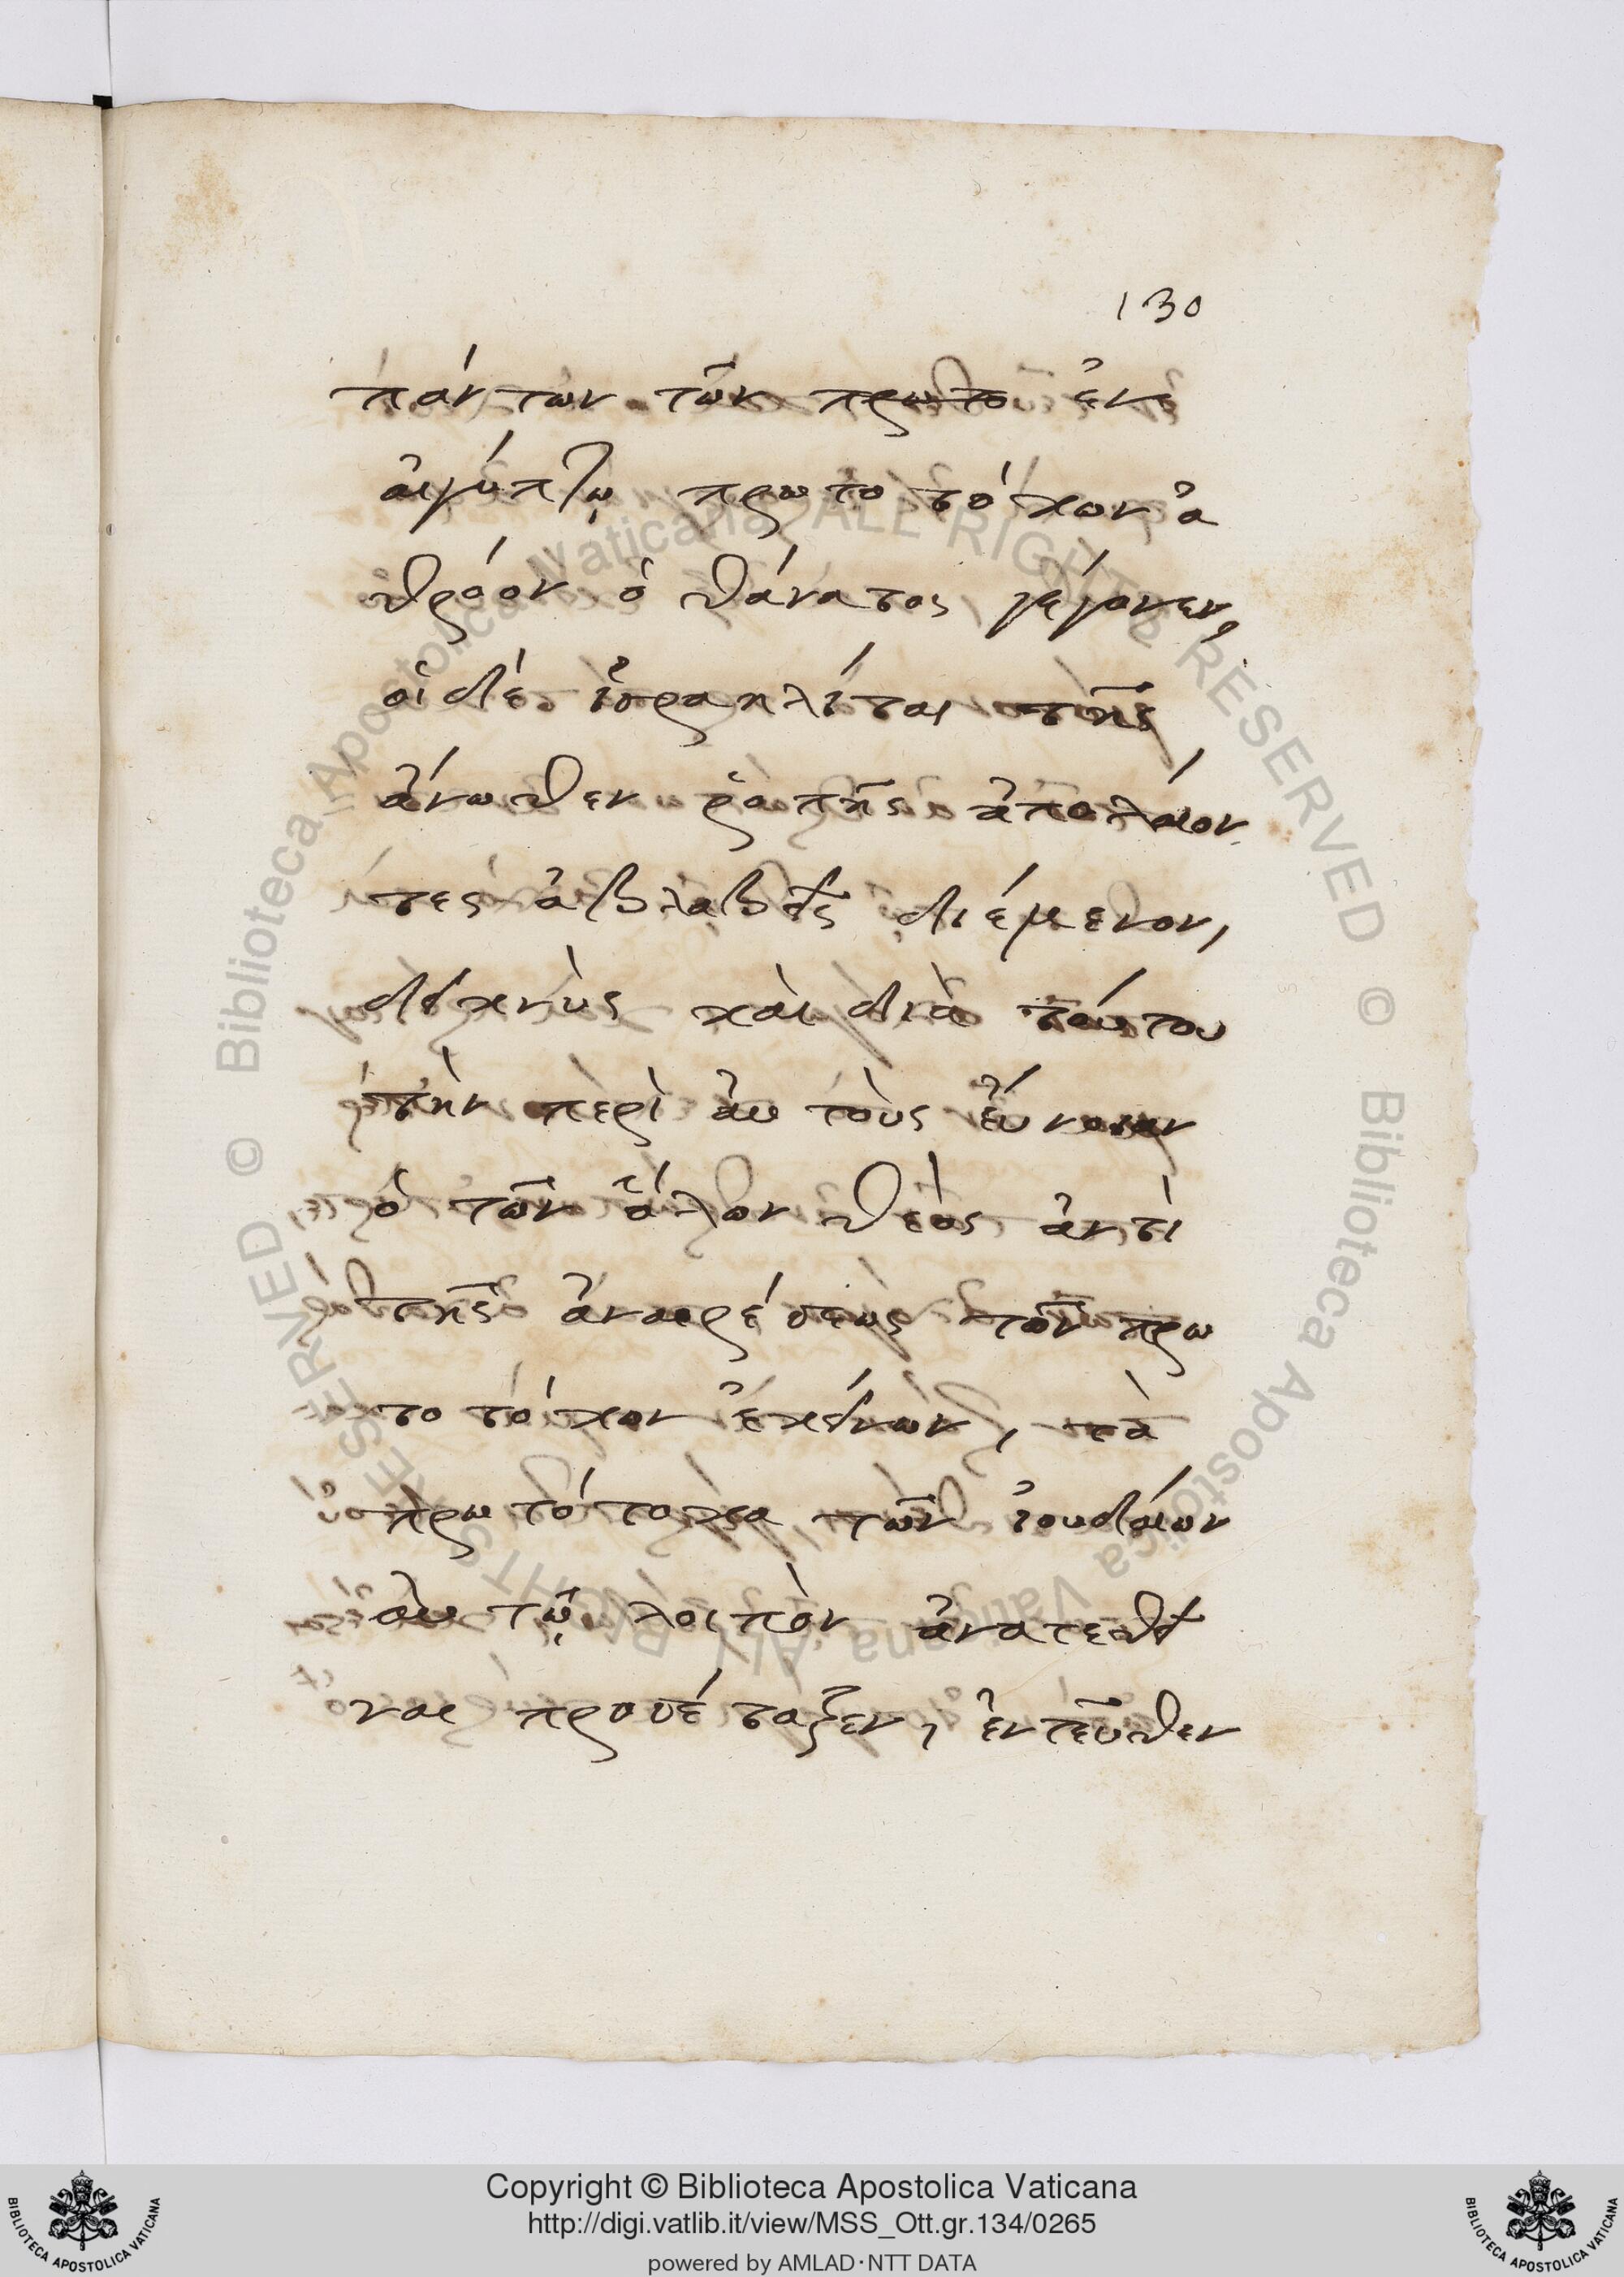 130
πάντων τῶν πρωτο ἐν
αἰγύπτῳ πρωτοτόκων ἀ
θρόον ὁ θάνατος γέγονεν,
οἱ δὲ ἰσραηλίται τῆς
ἄνωθεν ῥοπῆς ἀπολάυον
τες ἀβλαβεῖς διέμενον,
δεικνὺς καὶ διὰ τούτου
τὴν περὶ αὐτοὺς ἔυνοιαν
ὁ τῶν ὅλων θεὸς ἀντὶ
τῆς ἀναιρέσεως τῶν πρω
τοτόκον ἐκείνων, τὰ
πρωτότοκα τῶν ἰουδαίων
αὐτῷ λοιπὸν ἀνατεθεῖ
ναι προσέταξεν, ἐντεῦθεν
Copyright © Biblioteca Apostolica Vaticana
http://digi.vatlib.it/view/MSS_Ott.gr.134/0265
powered by AMLAD·NTT DATA
BIBLIOTECA APOSTOLICA VATICANA
BIBLIOTECA APOSTOLICA VATICANA
© Biblioteca Apostolica Vaticana ALL RIGHTS RESERVED
© Biblioteca Apostolica Vaticana ALL RIGHTS RESERVED